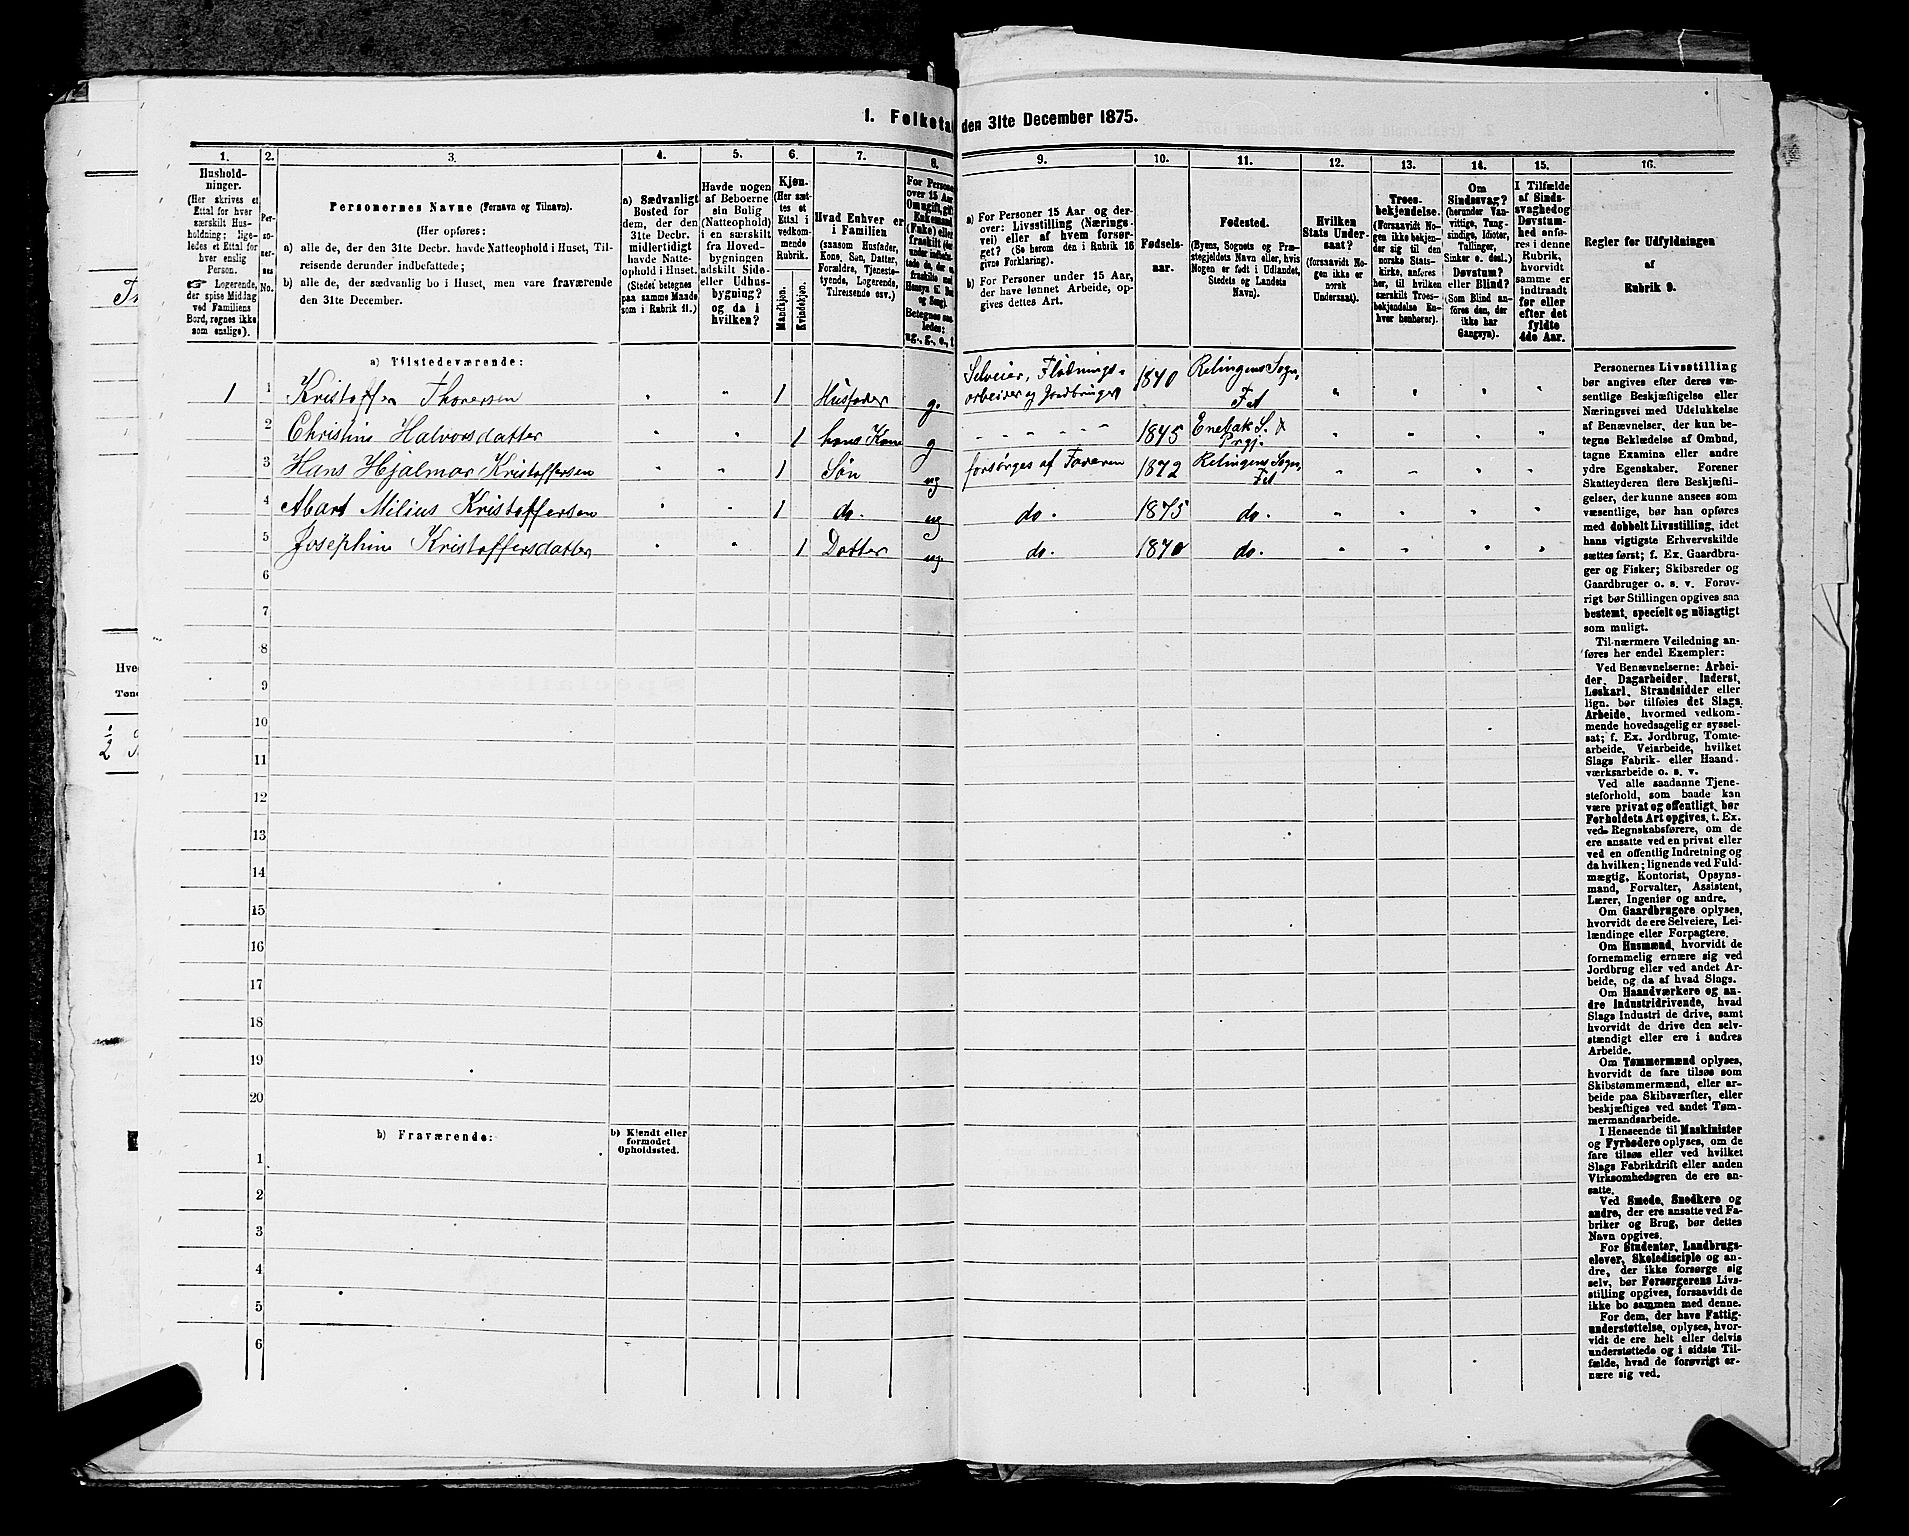 1. Folketal den 31te December 1875.
1. 2. 3. 4. 5. 6. 7. 8. 9. 10. 11. 12. 13. 14. 15. 16.
Husholdninger.
(Her skrives et
Ettal for hver
særskilt Husholdning;
ligeledes et Ettal for
hver enslig
Person.
☞ Logerende,
der spise Middag
ved Familiens
Bord, regnes ikke
som enslige).
Personernes No.
Personernes Navne (Fornavn og Tilnavn).
(Her opføres:
a) alle de, der den 31te Decbr. havde Natteophold i Huset, Tilreisende
derunder indbefattede;
b) alle de, der sædvanlig bo i Huset, men vare fraværende
den 31te December.
a) Sædvanligt
Bosted for
dem, der den
31te Decbr.
midlertidigt
havde Natteophold
i Huset.
(Stedet betegnes
paa samme Maade
som i Rubrik 11.)
Havde nogen
af Beboerne
sin Bolig
(Natteophold)
i en særskilt
fra Hovedbygningen
adskilt Side-
eller Udhusbygning?
og da i
hvilken?
Kjøn.
(Her sættes
et
Ettal i
vedkommende
Rubrik.
Mandkjøn.
Kvindekjøn.
Hvad Enhver er
i Familien
(saasom Husfader,
Kone, Søn, Datter,
Forældre, Tjenestetyende,
Logerende,
Tilreisende osv.)
For Personer
over 15 Aar:
Om ugift, gift,
Enkemand
(Enke) eller
fraskilt
Betegnes saaledes:
ug., g., e., f.
a) For Personer 15 Aar og derover:
Livsstilling (Næringsvei)
eller af hvem forsørget?
(Se herom den i Rubrik 16
givne Forklaring).
b) For Personer under 15 Aar,
der have lønnet Arbeide, opgives
dettes Art.
Fødselsaar.
Fødested.
(Byens, Sognets og Præstegjeldets
Navn eller, hvis
Nogen er født i Udlandet,
Stedets og Landets
Navn).
Hvilken
Stats Undersaat?
(forsaavidt Nogen
ikke er
norsk
Undersaat).
Troesbekjendelse.
(Forsaavidt Nogen
ikke bekjender
sig til den
norske Statskirke,
anføres
her, til hvilken
særskilt Troesbekjendelse
Enhver
henhører).
Om
Sindssvag?
(herunder Vanvittige,
Tungsindige,
Idioter,
Tullinger,
Sinker o. desl.)
Døvstum?
eller Blind?
(Som Blind anføres
den, der
ikke har
Gangsyn).
I Tilfælde
af Sindssvaghed
og
Døvstumhed
anføres
i denne
Rubrik,
hvorvidt
samme er
indtraadt
før eller
efter det
fyldte
4de Aar.
Regler for Udfyldningen
af
Rubrik 9.
a) Tilstedeværende:
1 1 Kristoffer Thoresen " " 1 Husfader g. Selveier, Flødnings-
arbeider og Jordbruger 1840 Relingens Sogn, Fet " " " "
2 Christine Halvorsdatter " " 1 hans Kone g - - - - - 1845 Enebak S. & Prgj.
3 Hans Hjalmar Kristoffersen " " 1 Søn ug forsørges af Faderen 1872 Relingens Sogn, Fet " " " "
4 Abart Milius Kristoffersen " " 1 do. ug do. 1875 do. " " " "
5 Josephine Kristoffersdatter " " 1 Datter ug do. 1870 do. " " " "
6
7
8
9
10
11
12
13
14
15
16
17
18
19
20
b) Fraværende:
b) Kjendt eller
formodet
Opholdssted.
1
2
3
4
5
6
Personernes Livsstilling
bør angives efter deres væsentlige
Beskjæftigelse eller
Næringsvei med Udelukkelse
af Benævnelser, der kun betegne
Beklædelse af Ombud,
tagne Examina eller andre
ydre Egenskaber. Forener
Skatteyderen flere Beskjæftigelser,
der kunne ansees som
væsentlige, bør han opføres
med dobbelt Livsstilling, idet
hans vigtigste Erhvervskilde
sættes først; f. Ex. Gaardbruger
og Fisker; Skibsreder og
Gaardbruger o. s. v. Forøvrigt
bør Stillingen opgives saa
bestemt, specielt og nøiagtigt
som muligt.
Til nærmere Veiledning anføres
her endel Exempler:
Ved Benævnelserne: Arbeider,
Dagarbeider, Inderst,
Løskarl, Strandsidder eller
lign. bør tilføies det Slags
Arbeide, hvormed vedkommende
hovedsagelig er sysselsat;
f. Ex. Jordbrug, Tomtearbeide,
Veiarbeide, hvilket
Slags Fabrik- eller Haandværksarbeide
o. s. v.
Ved alle saadanne Tjenesteforhold,
som baade kan
være privat og offentligt, bør
Forholdets Art opgives, t. Ex.
ved Regnskabsførere, om de
ere ansatte ved en privat eller
ved en offentlig Indretning og
da hvilken; lignende ved Fuldmægtig,
Kontorist, Opsynsmand,
Forvalter, Assistent,
Lærer, Ingeniør og andre.
Om Gaardbrugere oplyses,
hvorvidt de ere Selveiere, Leilændinge
eller Forpagtere.
Om Husmænd, hvorvidt de
fornemmelig ernære sig ved
Jordbrug eller ved andet Arbeide,
og da af hvad Slags.
Om Haandværkere og andre
Industridrivende, hvad
Slags Industri de drive, samt
hvorvidt de drive den selvstændigt
eller ere i andres
Arbeide.
Om Tømmermænd oplyses,
hvorvidt de fare tilsøs som
Skibstømmermænd, eller arbeide
paa Skibsværfter, eller
beskjæftiges ved andet Tømmermandsarbeide.
I Henseende til Maskinister
og Fyrbødere oplyses, om de
fare tilsøs eller ved hvilket
Slags Fabrikdrift eller anden
Virksomhedsgren de ere ansatte.
Ved Smede, Snedkere og
andre, der ere ansatte ved Fabriker
og Brug, bør dettes
Navn opgives.
For Studenter, Landbrugselever,
Skoledisciple og andre,
der ikke forsørge sig
selv, bør Forsørgerens Livsstilling
opgives, forsaavidt de
ikke bo sammen med denne.
For dem, der have Fattigunderstøttelse,
oplyses, hvorvidt
de ere helt eller delvis
understøttede og i sidste Tilfælde,
hvad de forøvrigt ernære
sig ved.